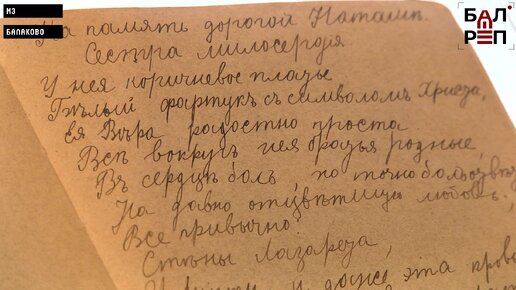 МЗ
БАЛАКОВО
БАЛ
РЕП
На память дорогой Наташѣ.
Сестра милосердія
У нея коричневое платье
Бѣлый фартукъ съ символомъ Христа,
Ея Вѣра радостно проста
Всѣ вокругъ нея друзья родные,
Въ сердцѣ боль, но точно
На давно отцвѣтшую любовь.
Все привычно:
Стѣны Лазарета,
и даже эта кровь